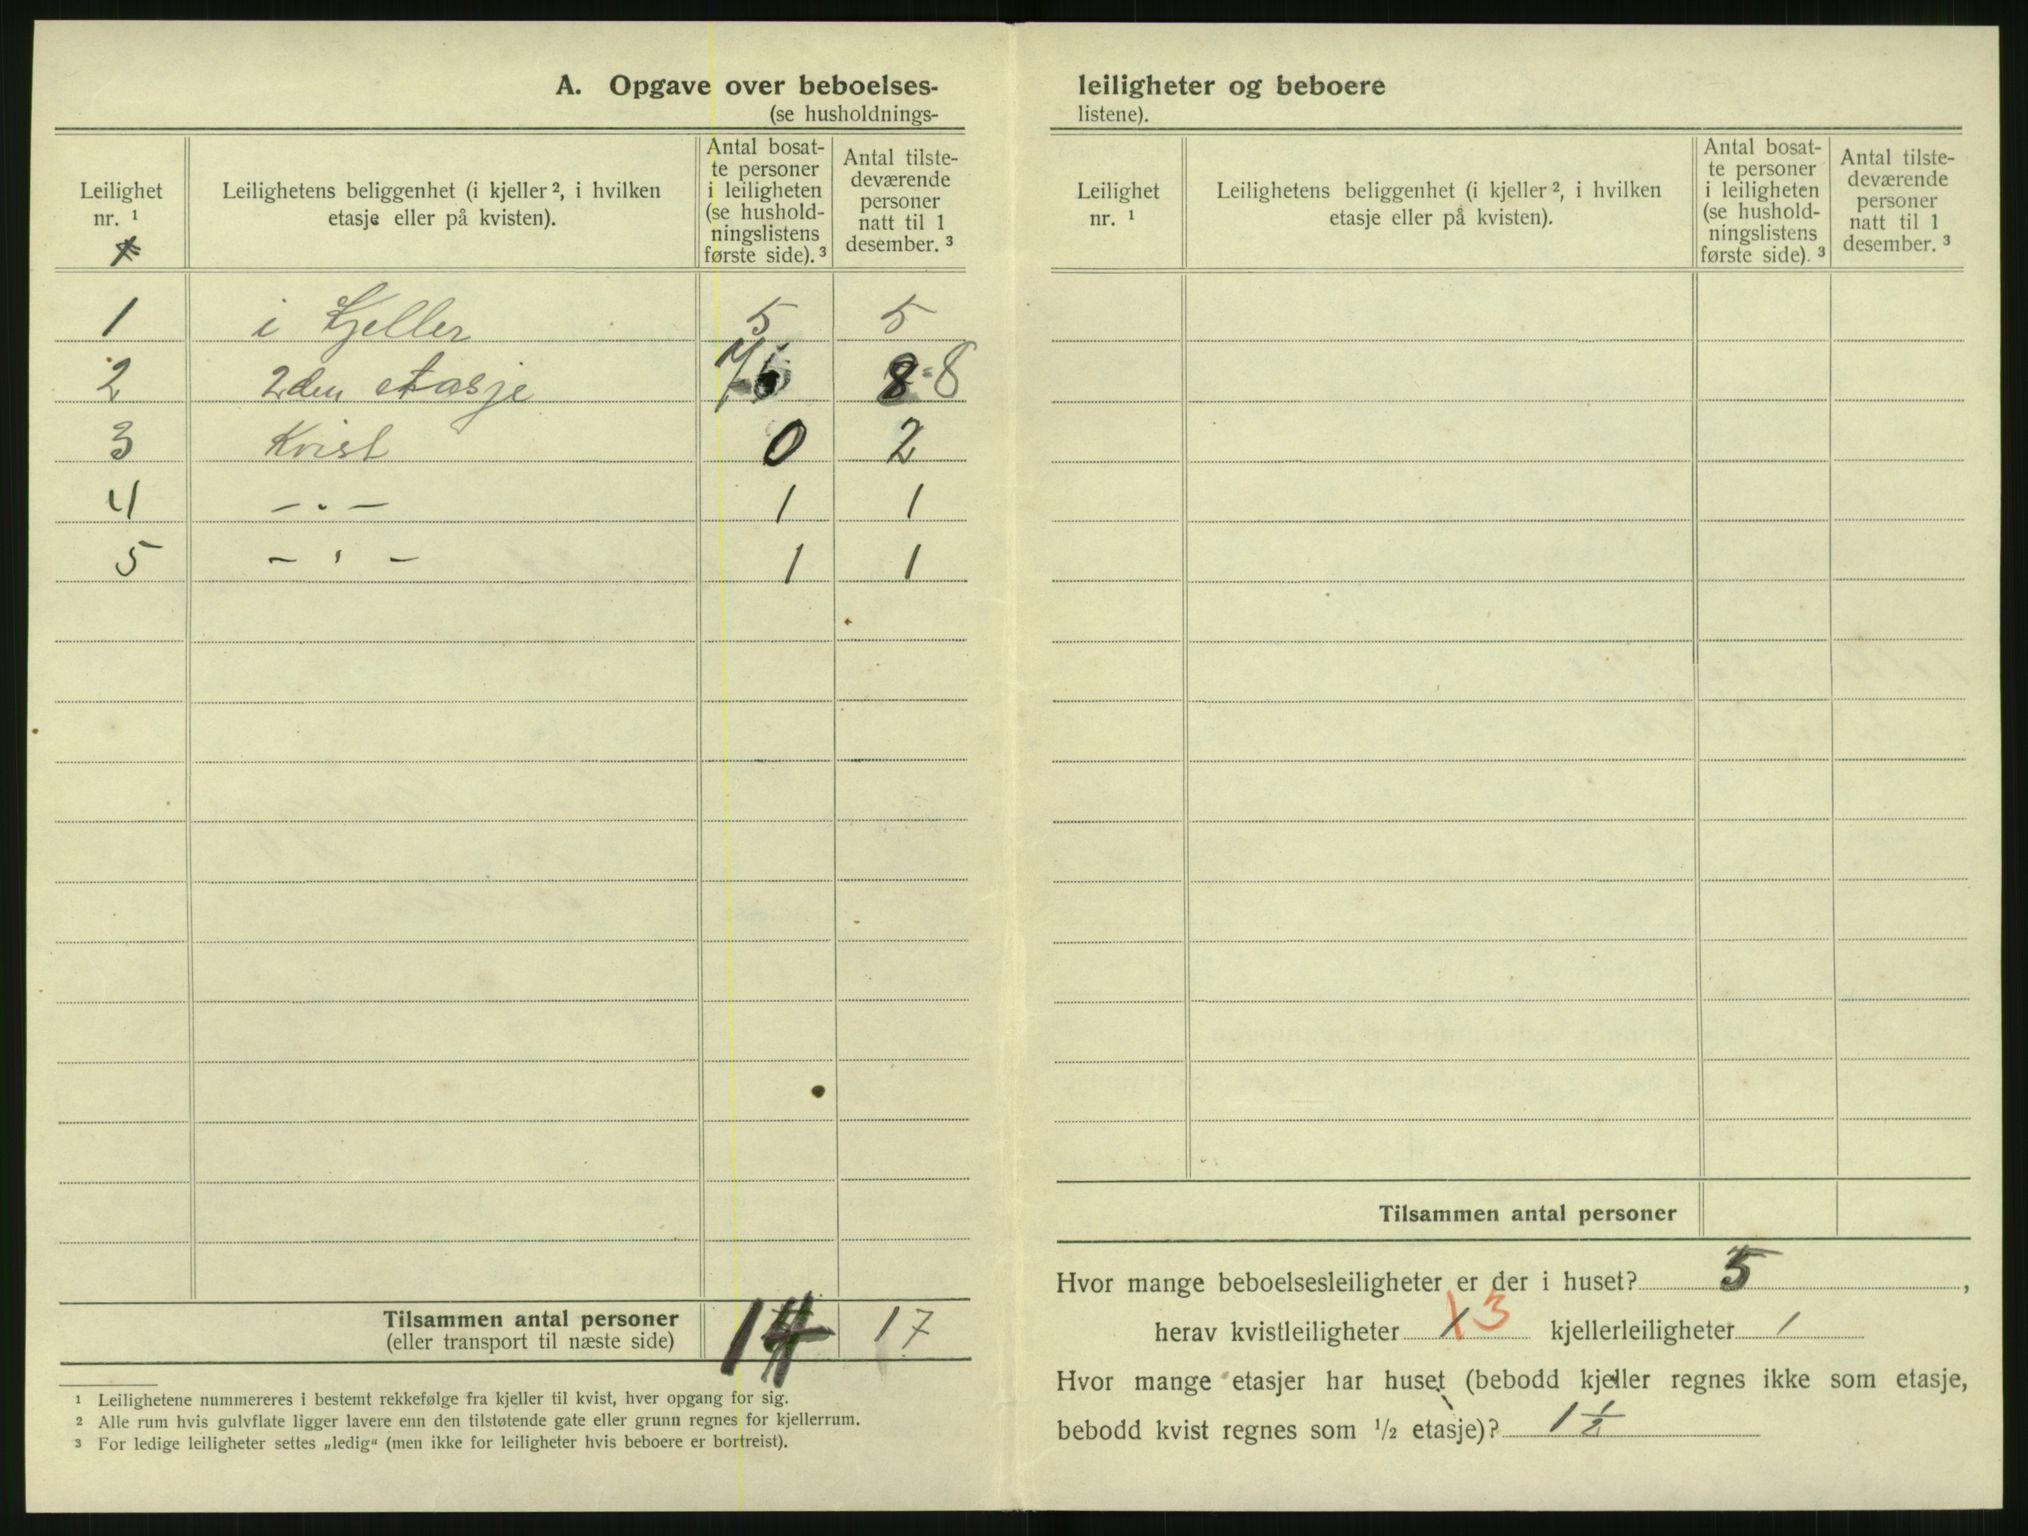 A. Opgave over beboelses-
(se husholdnings-
Leilighet nr. ¹
Leilighetens beliggenhet (i kjeller ², i hvilken etasje eller på kvisten).
Antal bosatte personer i leiligheten (se husholdningslistens første side). ³
Antal tilstedeværende personer natt til 1 desember. ³
1 i Kjeller 5 5
2 2den etasje 8 8
3 Kvist 0 2
4 — " — 1 1
5 — " — 1 1
Tilsammen antal personer 17
(eller transport til næste side)
¹ Leilighetene nummereres i bestemt rekkefølge fra kjeller til kvist, hver opgang for sig.
² Alle rum hvis gulvflate ligger lavere enn den tilstøtende gate eller grunn regnes for kjellerrum.
³ For ledige leiligheter settes „ledig“ (men ikke for leiligheter hvis beboere er bortreist).
leiligheter og beboere
listene).
Leilighet nr. ¹
Leilighetens beliggenhet (i kjeller ², i hvilken etasje eller på kvisten).
Antal bosatte personer i leiligheten (se husholdningslistens første side). ³
Antal tilstedeværende personer natt til 1 desember. ³
Tilsammen antal personer
Hvor mange beboelsesleiligheter er der i huset? 5,
herav kvistleiligheter 3 kjellerleiligheter 1
Hvor mange etasjer har huset (bebodd kjeller regnes ikke som etasje,
bebodd kvist regnes som ½ etasje)? 1 ½